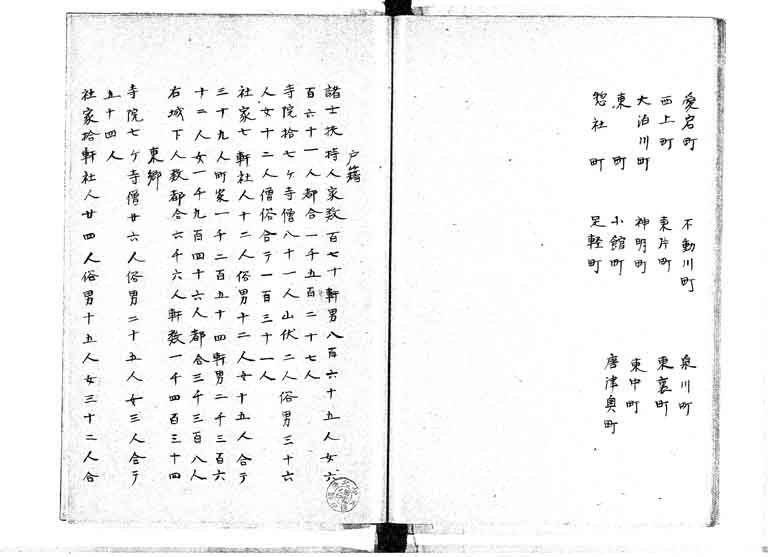 愛宕町　不動川町　泉川町
西上町　東片町　東裏町
大泊川町　神明町　東中町
東町　小館町　唐津奥町
惣社町　足軽町
戸籍
諸士扶持人家数百七十軒男八百六十五人女六
百六十一人都合一千五百二十七人
寺院拾七ヶ寺僧八十一人山伏二人俗男三十六
人女十二人僧俗合テ一百三十一人
社家七軒社人十二人俗男十二人女十五人合テ
三十九人町家一千二百五十四軒男二千三百六
十二人女一千九百四十六人都合三千三百八人
右城下人数都合六千六人軒数一千四百三十四
東郷
寺院七ヶ寺僧廿六人俗男二十五人女三人合テ
五十四人
社家拾軒社人廿四人俗男十五人女三十二人合